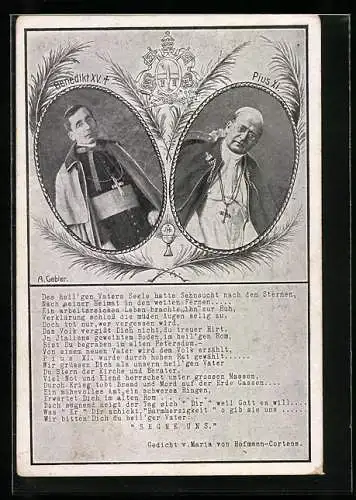 Benedikt XV. †
Pius XI.
A. Gebler.
Des heil'gen Vaters Seele hatte Sehnsucht nach den Sternen,
Nach seiner Heimat in den weiten Fernen.....
Ein arbeitsreiches Leben brachte ihn zur Ruh,
Verklärung schloß die müden Augen selig zu,
Doch tot nur, wer vergessen wird.
Das Volk vergißt Dich nicht, du treuer Hirt,
In Italiens geweihtem Boden, im heil'gen Rom,
Bist Du begraben im alten Petersdom.-
Von einem neuen Vater wird dem Volk erzählt,
P i u s XI. wurde durch hohen Rat gewählt.....
Wir grüssen Dich als unsern heil'gen Vater
Du Stern der Kirche und Berater.
Viel Not und Elend herrschet unter grossen Massen,
Durch Krieg tobt Brand und Mord auf der Erde Gassen....
Ein mühevolles Amt, ein schweres Ringen,
Erwartet Dich im alten Rom ....
Doch segnend neigt der Tag sich " Dir " weil Gott es will....
Was " Er " Dir schickt "Barmherzigkeit " o gib sie uns ......
Wir bitten Dich du heil'ger Vater:
" S E G N E UNS."
Gedicht v. Maria von Hofmann-Cortens.